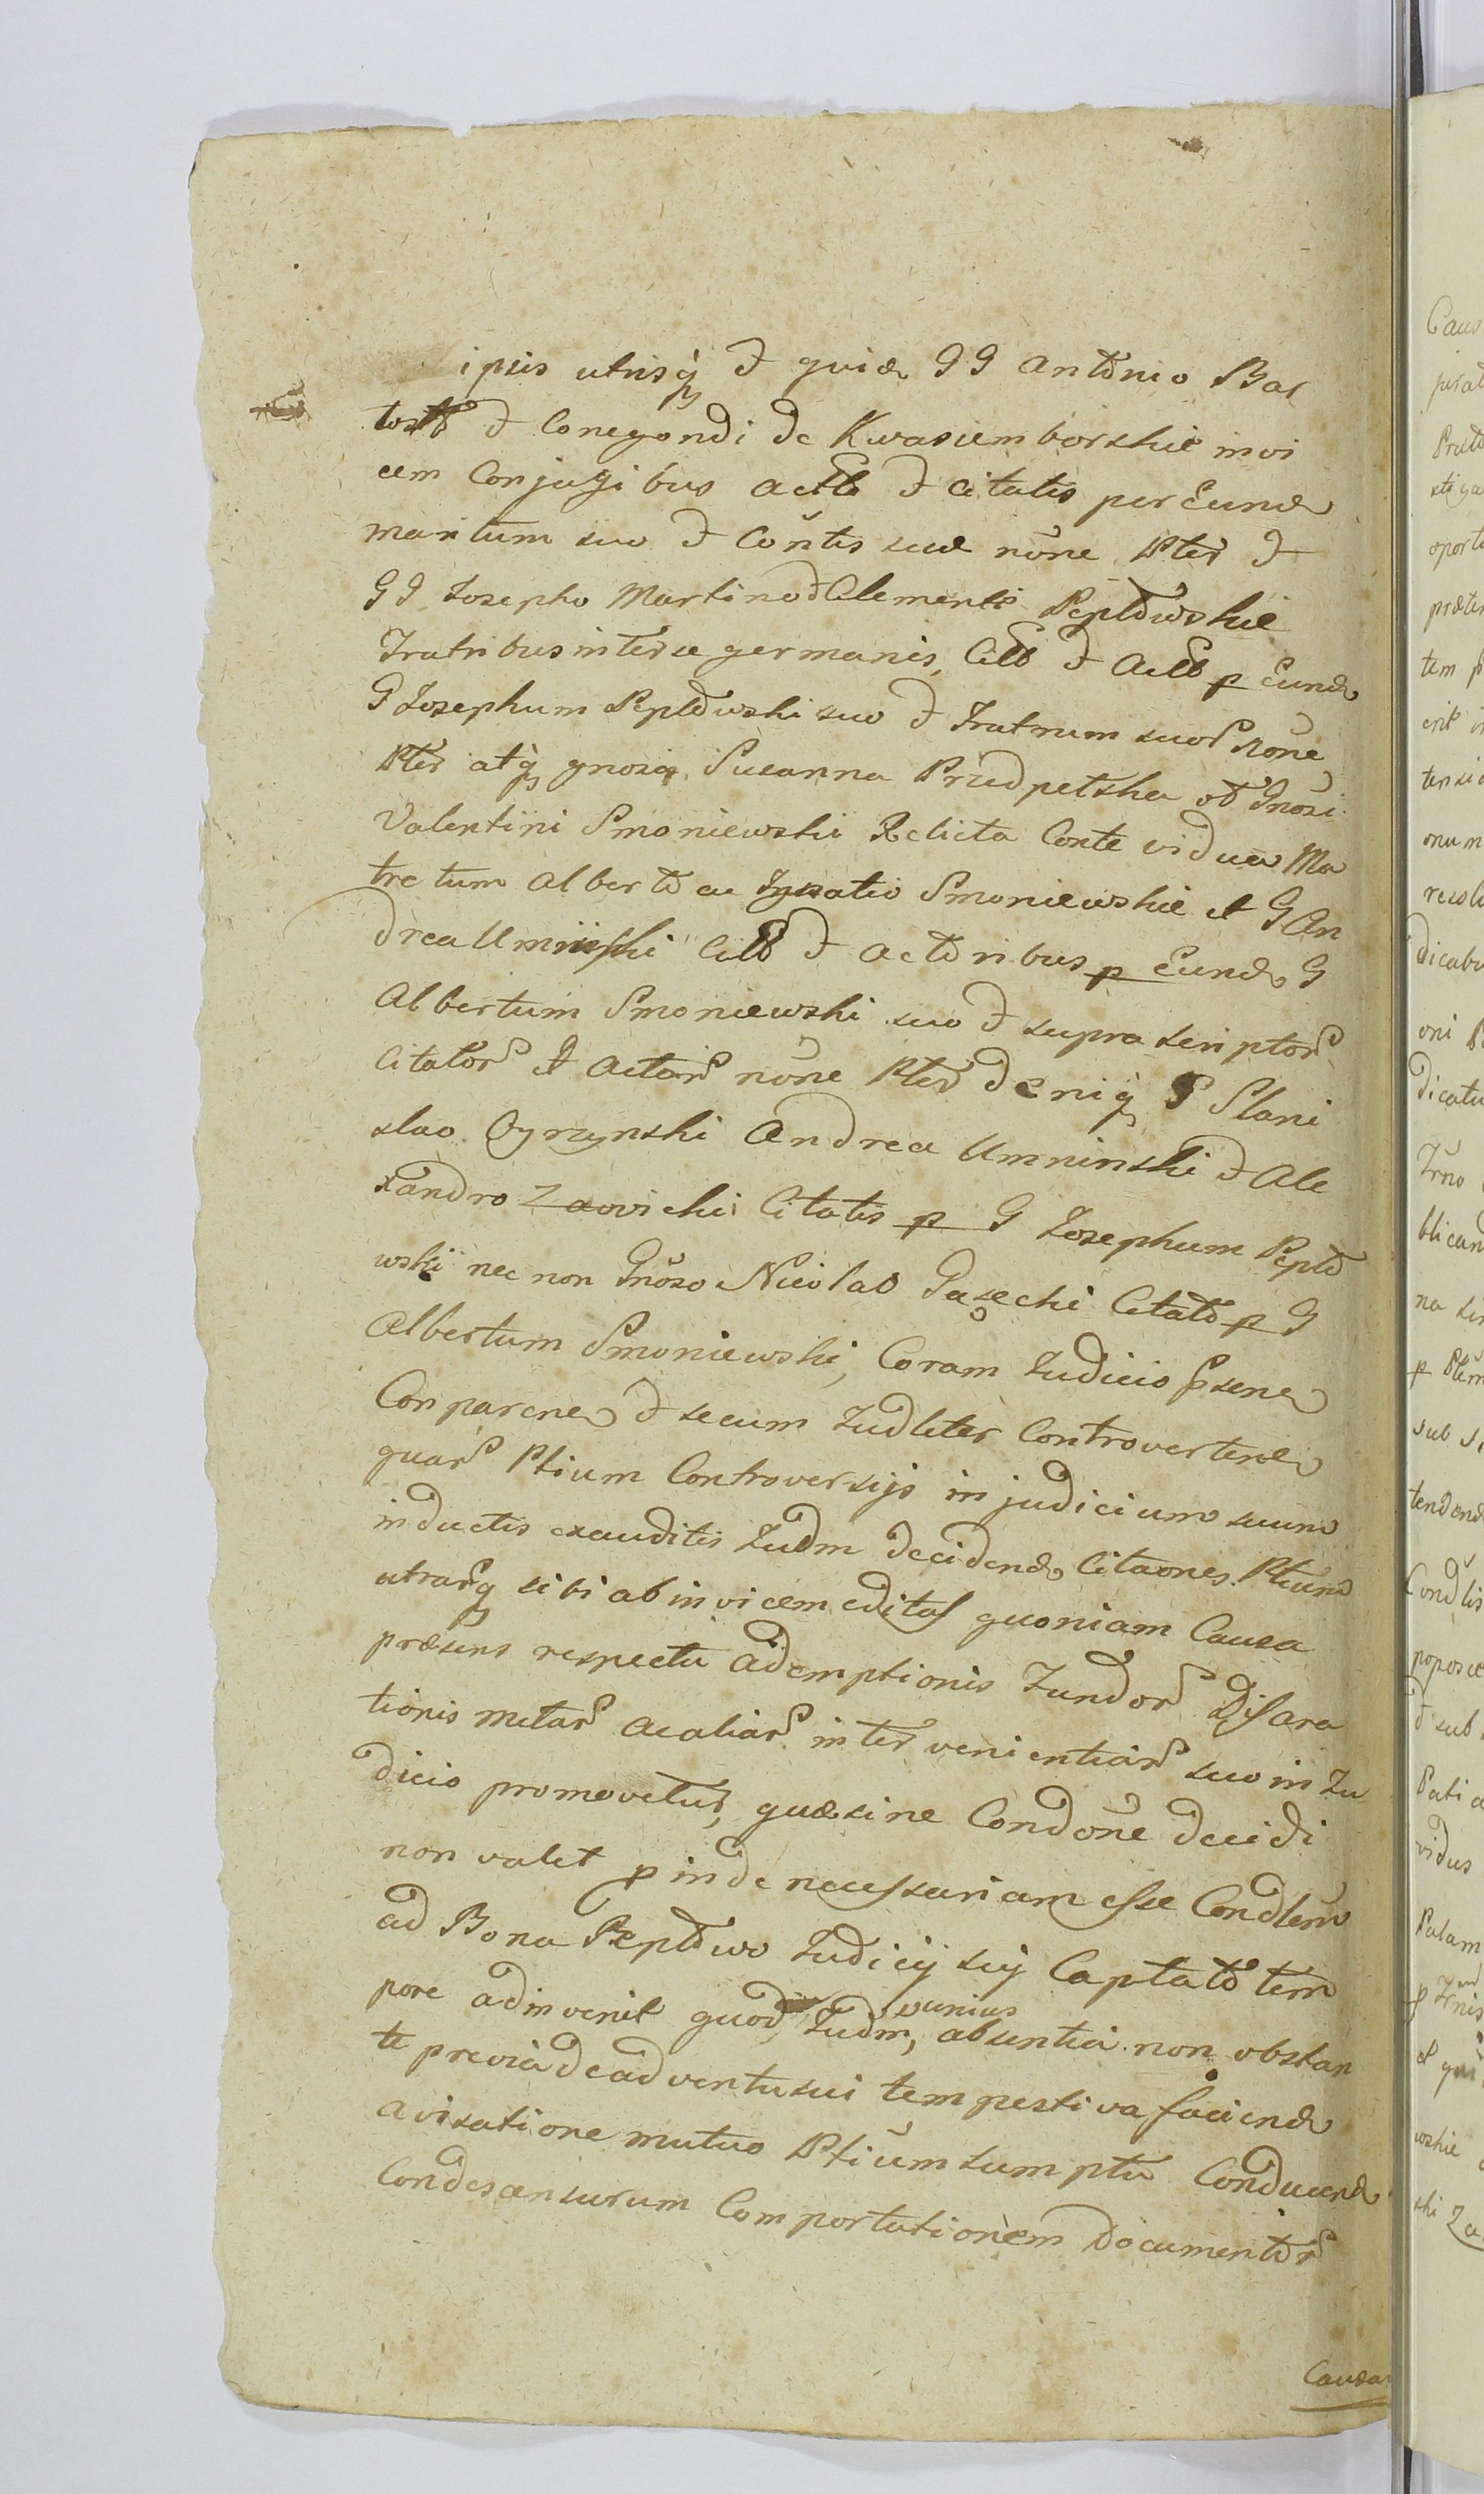 ipsis utrisq̀ & quidẽ GG Antonio Bar
tosk & Conegondi de Kwasiemborskie invi
cem Conjugibus actb & citatis per Eund
maritum suo & Contis suæ nõne Ptes &
GG Josepho Martino & Clementi Peptowskie
Fratribus inter se germanis, Citb & Actb p Eund
G Josephum Peptowski suo & Fratrum suor nõne
Ptes atq̀ gnosa Susanna Przedpetska ol Gnosi
Valentini Smoniewski Relicta Conte vidua Ma
tre tum Alberto ac Ignatio Smoniewskie et G An
drea Uminski Citb & Actoribus p Eund G
Albertum Smoniewski suo & supra scriptor
Citator & Actor nõne Ptes deniq̀ G Stani
slao Gyrzynski Andrea Umninski & Ale
xandro Zawichi Citatis p G Josephum Pepto
wski nec non Gnoso Nicolao Gasecki Citato p G
Albertum Smoniewski, Coram Judicio psene
Comparene & secum Judleter Controvertene
quar Ptium Controversijs in judicium suum
inductis exauditis Judm decidend Citaones Ptium
utrarq̀ sibi ab invicem editas quoniam Causa
præsens respectu ademptionis Fundor Disara
tionis metar ac aliar inter venientiar suo in Ju
dicio promovetur, quæ sine Condõne decidi
non valet p inde necessariam esse Condlem
ad Bona Peptowo Judicij sij Captato tem
pore adinvenit quod Judm, unius absentia non obstan
te previa de adventu sui tempestiva faciend
avisatione mutuo Ptium sumptu Conducend
Condescensurum Comportationem Documentor
Causar
Caus
jurat
sti ga
oport
præter
tem p
erit i
tensio
onum
resolu
dicabu
oni
dicatu
blican
na
sub
tendend
Condlis
poposce
& sub
Pati
vidus
Palam
et qui
wskie
ski Za